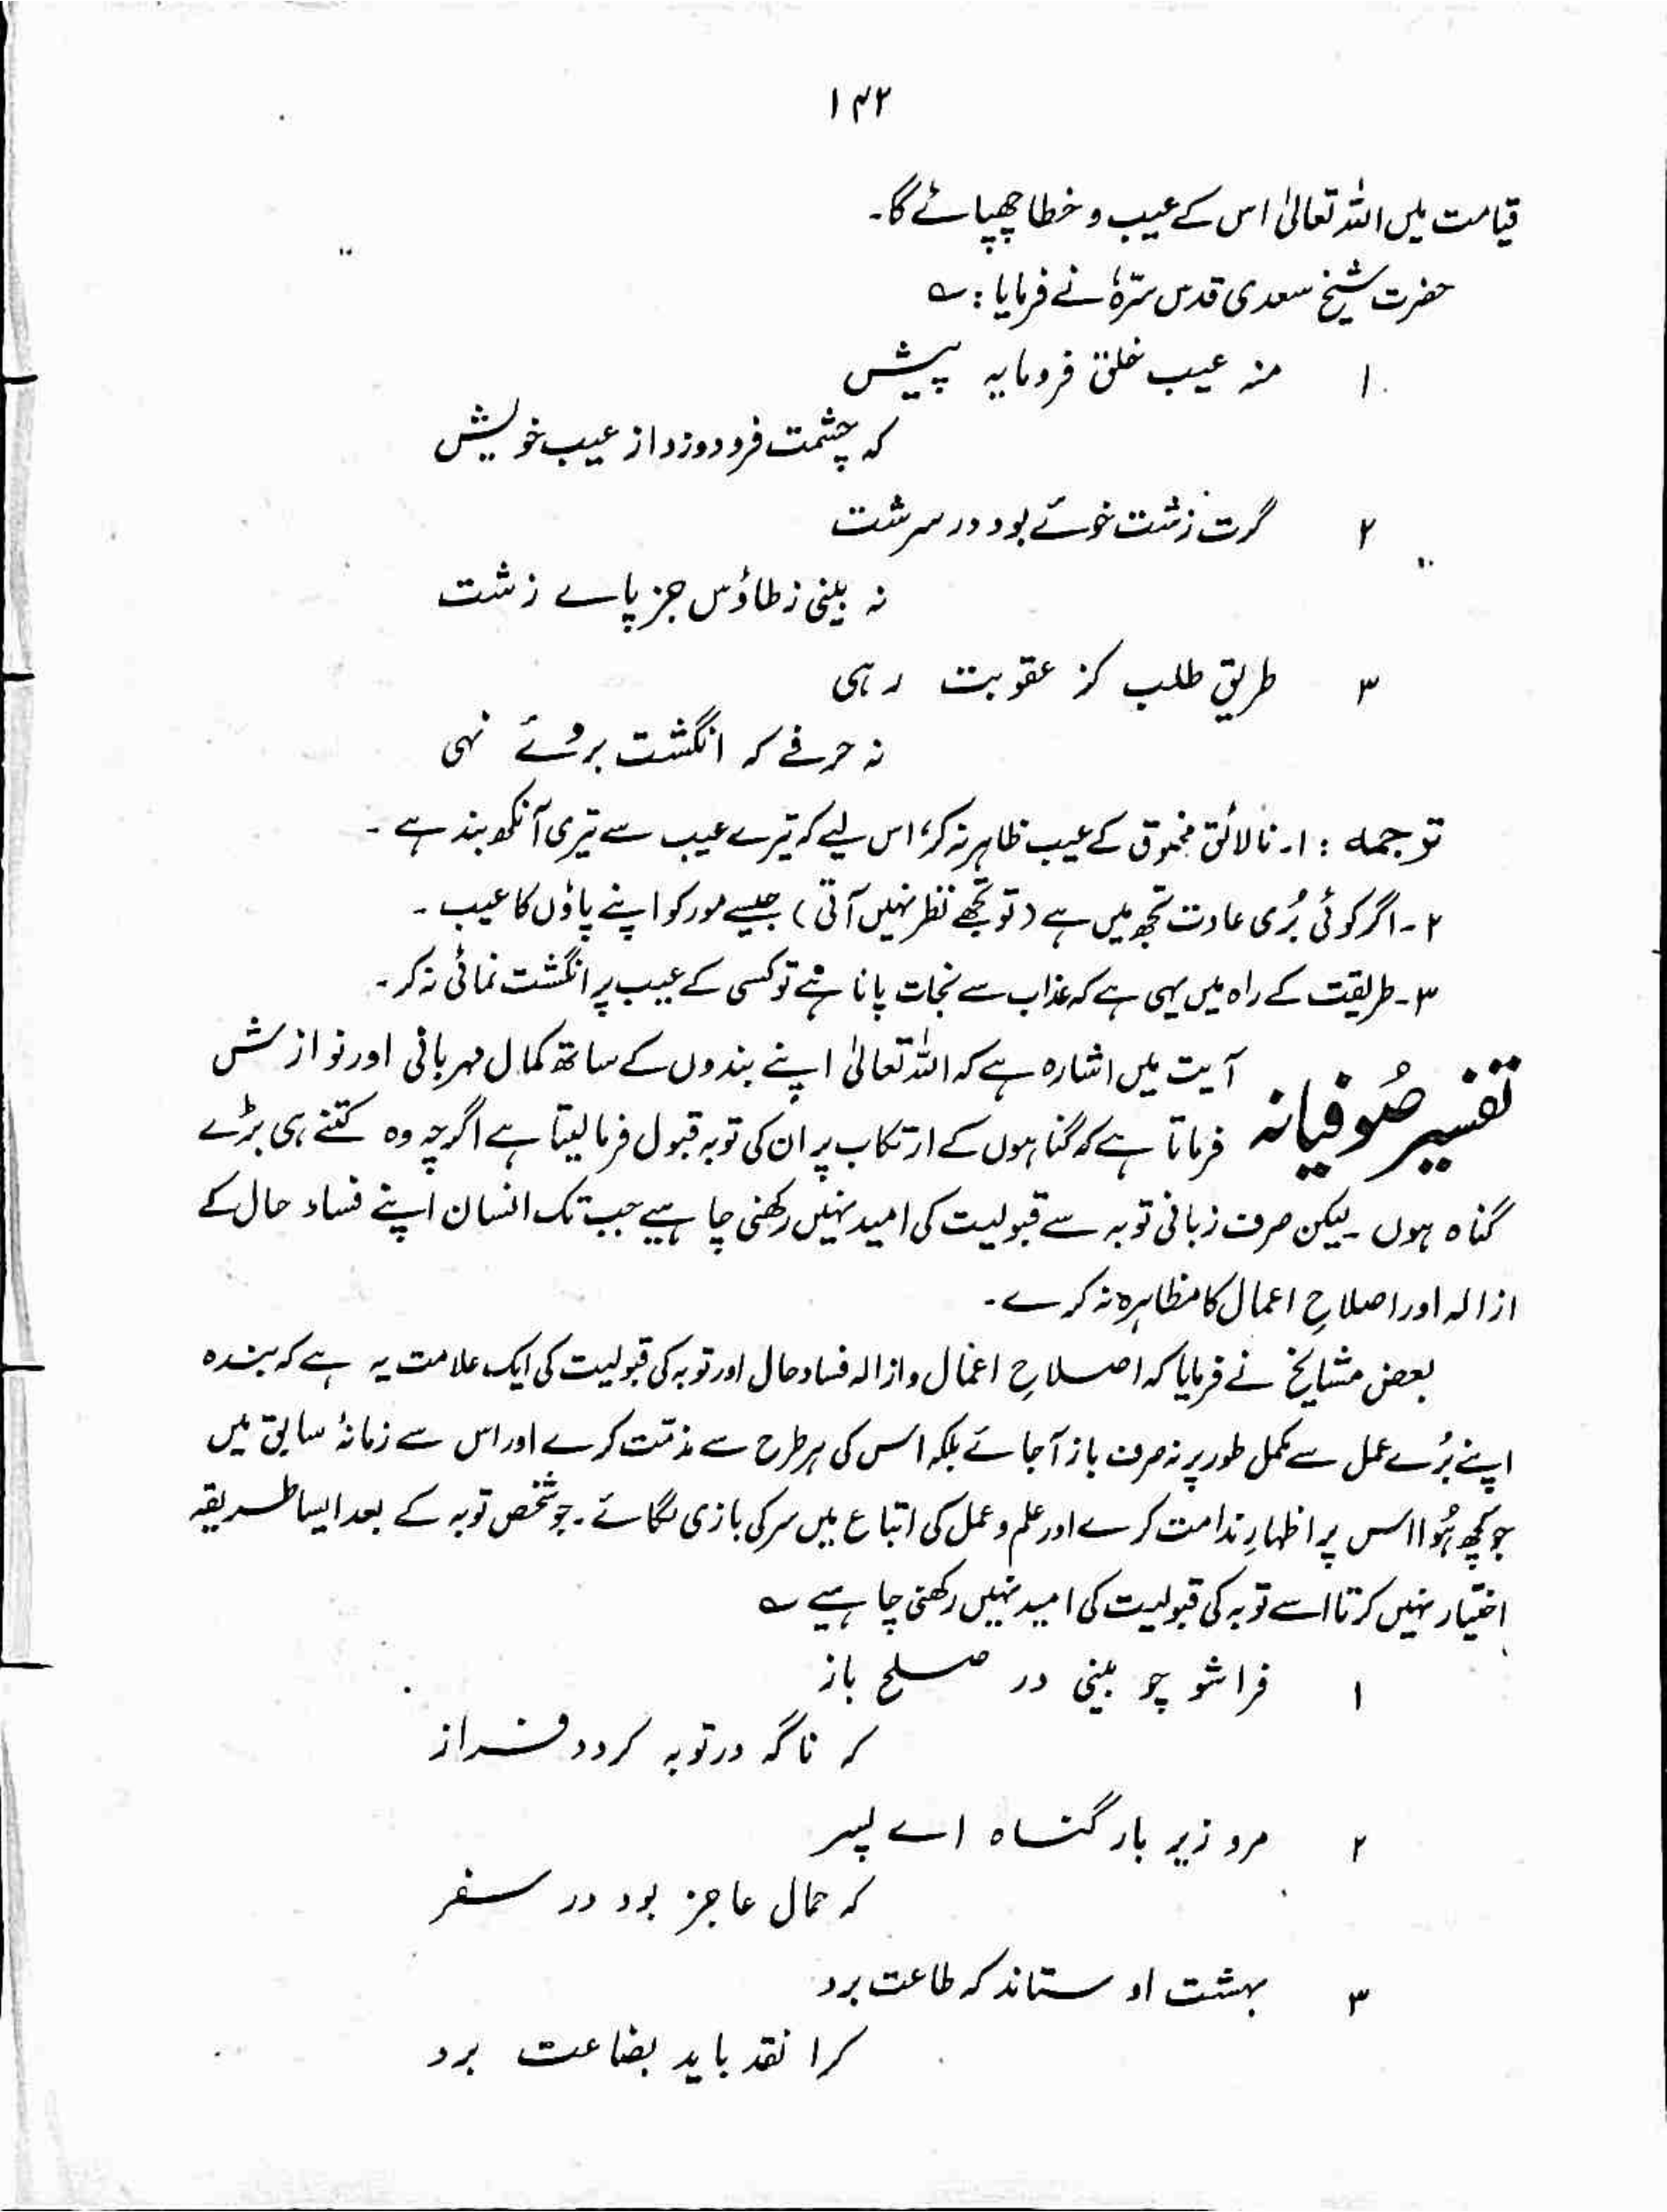 ۱۴۲
قیامت میں اللہ تعالیٰ اس کے عیب و خطا چھپائے گا۔
حضرت شیخ سعدی قدس سرّہٗ نے فرمایا : ؎
۱ منہ عیب خلق فرومایہ پیش
کہ چشمت فرو دوزد از عیب خویش
۲ گرت زشت خوئے بود در سرشت
نہ بینی ز طاؤس جز پاے زشت
۳ طریق طلب کز عقوبت رہی
نہ حرفے کہ انگشت بروئے نہی
توجمہ : ۱۔ نالائق مخلوق کے عیب ظاہر نہ کر، اس لیے کہ تیرے عیب سے تیری آنکھ بند ہے ۔
۲۔ اگر کوئی بُری عادت تجھ میں ہے (تو تجھے نظر نہیں آتی) جیسے مور کو اپنے پاؤں کا عیب ۔
۳۔ طریقت کے راہ میں یہی ہے کہ عذاب سے نجات پانا ہے تو کسی کے عیب پر انگشت نمائی نہ کر ۔
تفسیر صُوفیانہ آیت میں اشارہ ہے کہ اللہ تعالیٰ اپنے بندوں کے ساتھ کمال مہربانی اور نوازش
فرماتا ہے کہ گناہوں کے ارتکاب پر ان کی توبہ قبول فرما لیتا ہے اگرچہ وہ کتنے ہی بڑے
گناہ ہوں ۔ لیکن صرف زبانی توبہ سے قبولیت کی امید نہیں رکھنی چاہیے جب تک انسان اپنے فساد حال کے
ازالہ اور اصلاحِ اعمال کا مظاہرہ نہ کرے ۔
بعض مشایخ نے فرمایا کہ اصلاحِ اعمال و ازالہ فساد حال اور توبہ کی قبولیت کی ایک علامت یہ ہے کہ بندہ
اپنے بُرے عمل سے مکمل طور پر نہ صرف باز آجائے بلکہ اس کی ہر طرح سے مذمّت کرے اور اس سے زمانۂ سابق میں
جو کچھ ہُوا اس پر اظہارِ ندامت کرے اور علم و عمل کی اتباع میں سر کی بازی لگائے ۔ جو شخص توبہ کے بعد ایسا طریقہ
اختیار نہیں کرتا اسے توبہ کی قبولیت کی امید نہیں رکھنی چاہیے ؎
۱ فراشو چو بینی در صلح باز
کہ ناگہ در توبہ گردد فراز
۲ مرو زیر بار گناہ اے پسر
کہ حمال عاجز بود در سفر
۳ بہشت او ستاند کہ طاعت برد
کرا نقد باید بضاعت برد